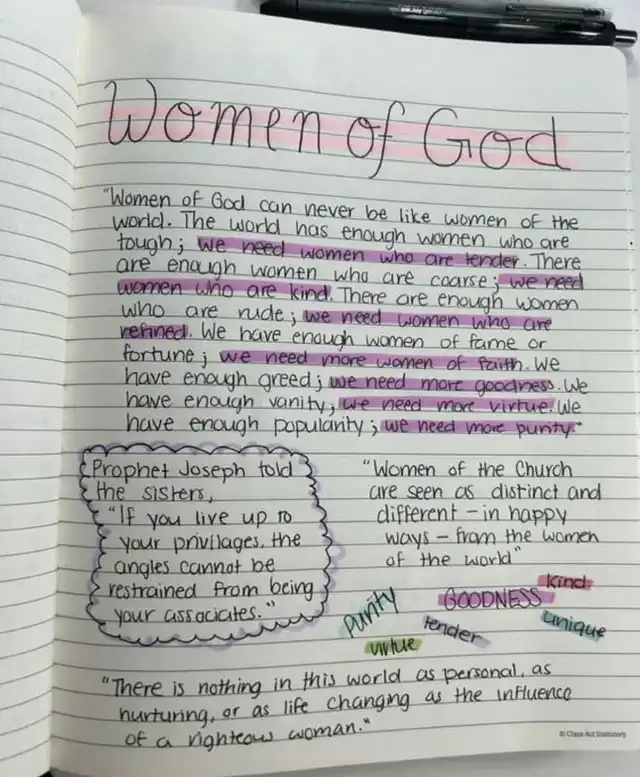 Women of God
"Women of God can never be like women of the
world. The world has enough women who are
tough; we need women who are tender. There
are enough women who are coarse; we need
women who are kind. There are enough women
who are rude; we need women who are
refined. We have enough women of fame or
fortune; we need more women of faith. We
have enough greed; we need more goodness. We
have enough vanity; we need more virtue. We
have enough popularity; we need more purity."
Prophet Joseph told
the sisters,
"If you live up to
your privilages, the
angles cannot be
restrained from being
your associates."
"Women of the Church
are seen as distinct and
different - in happy
ways - from the women
of the world"
kind
purity GOODNESS
tender unique
virtue
"There is nothing in this world as personal, as
nurturing, or as life changing as the influence
of a righteous woman."
© Class Act Stationery